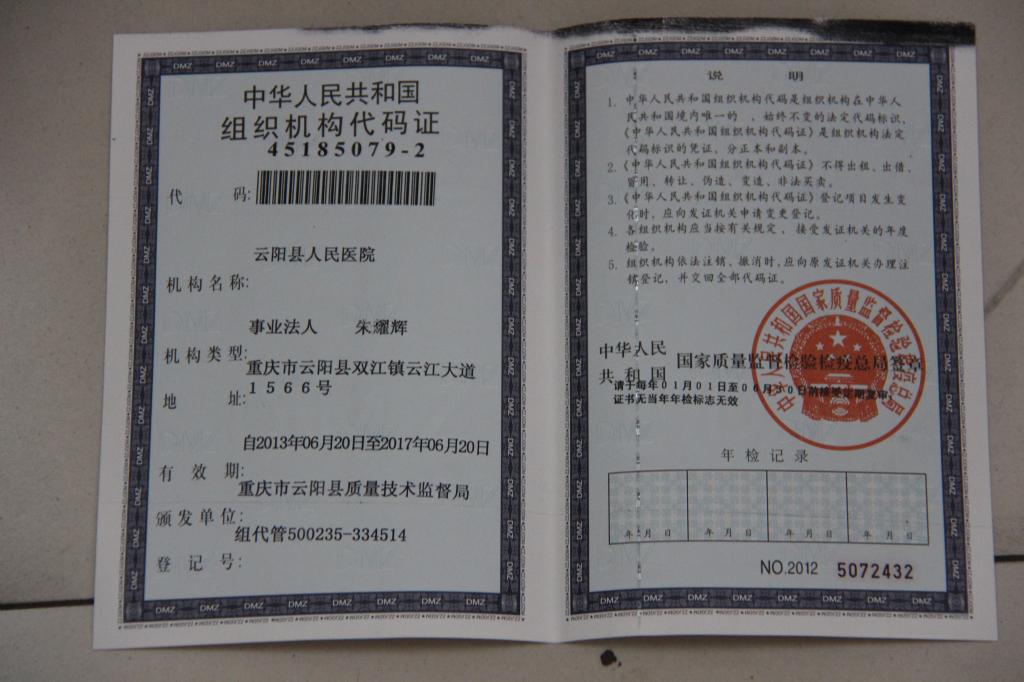 中华人民共和国
组织机构代码证
45185079-2
代 码:
云阳县人民医院
机构名称:
事业法人 朱耀辉
机构类型:
重庆市云阳县双江镇云江大道
1566号
地 址:
自2013年06月20日至2017年06月20日
有 效 期:
重庆市云阳县质量技术监督局
颁发单位:
组代管500235-334514
登 记 号:
说 明
1. 中华人民共和国组织机构代码是组织机构在中华人
民共和国境内唯一的、始终不变的法定代码标识,
《中华人民共和国组织机构代码证》是组织机构法定
代码标识的凭证,分正本和副本。
2.《中华人民共和国组织机构代码证》不得出租、出借、
冒用、转让、伪造、变造、非法买卖。
3.《中华人民共和国组织机构代码证》登记项目发生变
化时,应向发证机关申请变更登记。
4. 各组织机构应当按有关规定,接受发证机关的年度
检验。
5. 组织机构依法注销、撤消时,应向原发证机关办理注
销登记,并交回全部代码证。
中华人民
共和国 国家质量监督检验检疫总局签章
请于每年01月01日至06月30日
证书无当年年检标志无效
中华人民共和国国家质量监督检验检疫总局
年检记录
年 月 日 年 月 日 年 月 日 年 月 日
NO.2012 5072432